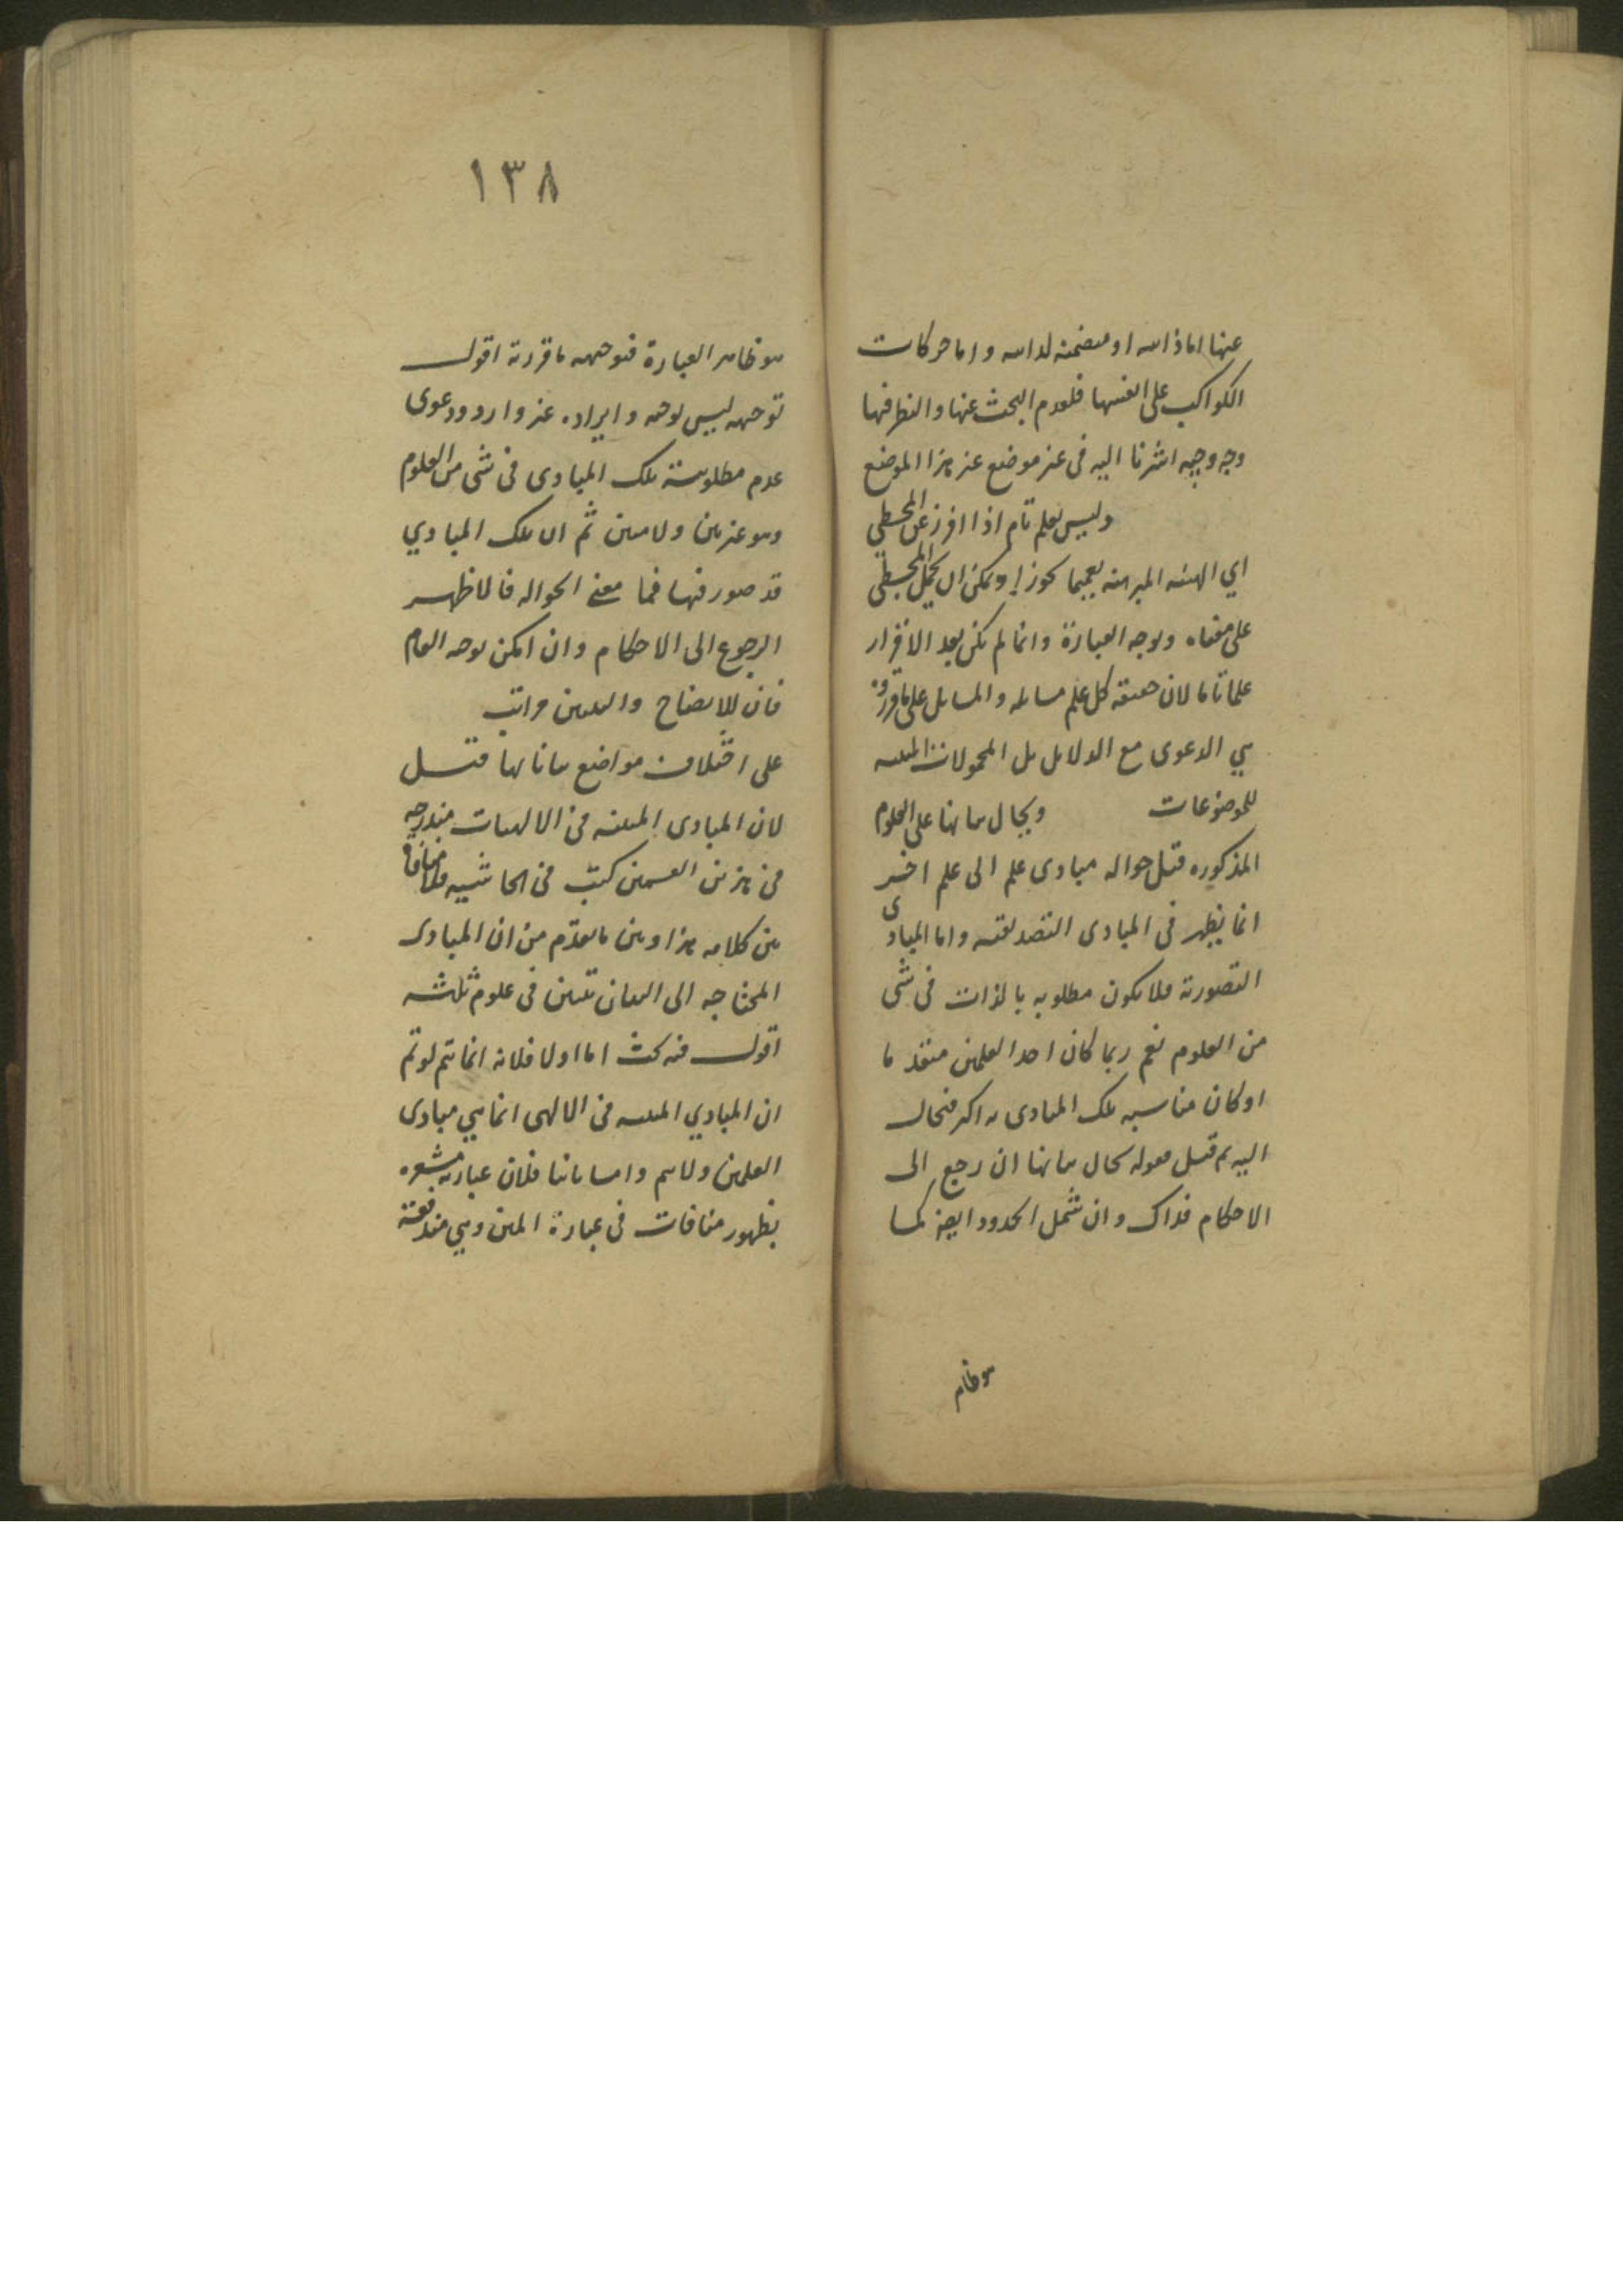 عنها اما ذاتيه او متضمنة لذاتيه واما حركات
الكواكب على انفسها فلعدم البحث عنها والنظر فيها
وجه وجيه اشرنا اليه في غير موضع غير هذا الموضع
وليس بعلم تام اذا افرز عن المجسطي
اي الهيئه المبرهنه تعميما تجوزا ويمكن ان يحمل المجسطي
على معناه وتوجه العبارة وانما لم يكن بعد الافراز
علما تاما لان حقيقة كل علم مسايله والمسايل على ما قرروه
هي الدعوى مع الدلايل بل المحمولات المثبته
للموضوعات ويحال بيانها على العلوم
المذكوره قيل حواله مبادى علم الى علم اخر
انما يظهر في المبادى التصديقيه واما المبادى
التصورية فلا يكون مطلوبه بالذات في شى
من العلوم نعم ربما كان احد العلمين متقدما
او كان مناسبه تلك المبادى به اكثر فيحال
اليه ثم قيل فقوله يحال بيانها ان رجع الى
الاحكام فذاك وان شمل الحدود ايضا كما
هو ظاهر
١٣٨
هو ظاهر العبارة فتوجيهه ما قررته اقول
توجيهه ليس بوجيه وايراده غير وارد ودعوى
عدم مطلوبية تلك المبادى في شى من العلوم
وهو غير بين ولا مبين ثم ان تلك المبادي
قد صور فيها فما معنى الحواله فالاظهر
الرجوع الى الاحكام وان امكن توجيه العام
فان للايضاح والتبيين مراتب
على اختلاف مواضع بياناتها قيل
لان المبادى المبينه في الالهيات مندرجه
في هذين القسمين كتب في الحاشيه فلا منافاة
بين كلامه هذا وبين ما تقدم من ان المبادى
المحتاجه الى البيان تتبين في علوم ثلثه
اقول فيه بحث اما اولا فلانه انما يتم لو تم
ان المبادي المبينه في الالهى انما هي مبادى
العلمين ولا يتم واما ثانيا فلان عبارته مشعره
بظهور منافات في عبارة المتن وهي مندفعة